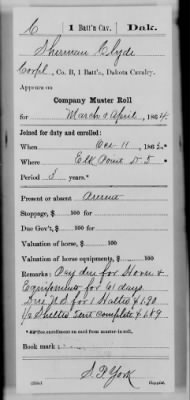 C 1 Batt'n Cav. Dak.
Sherman Clyde
Corpl., Co. B, 1 Batt'n, Dakota Cavalry.
Appears on
Company Muster Roll
for March & April, 1864.
Joined for duty and enrolled:
When Dec 11, 186
Where Elk Point D. T.
Period 3 years.*
Present or absent Present
Stoppage, $ 100 for
Due Gov't, $ 100 for
Valuation of horse, $ 100
Valuation of horse equipments, $ 100
Remarks: Pay due for Horse &
Equipments for 61 days.
Due U.S. for 1 Halter $1.90
1/2 Shelter Tent complete $
*See enrollment on card from muster-in roll.
Book mark:
S. P. York
Copyist.